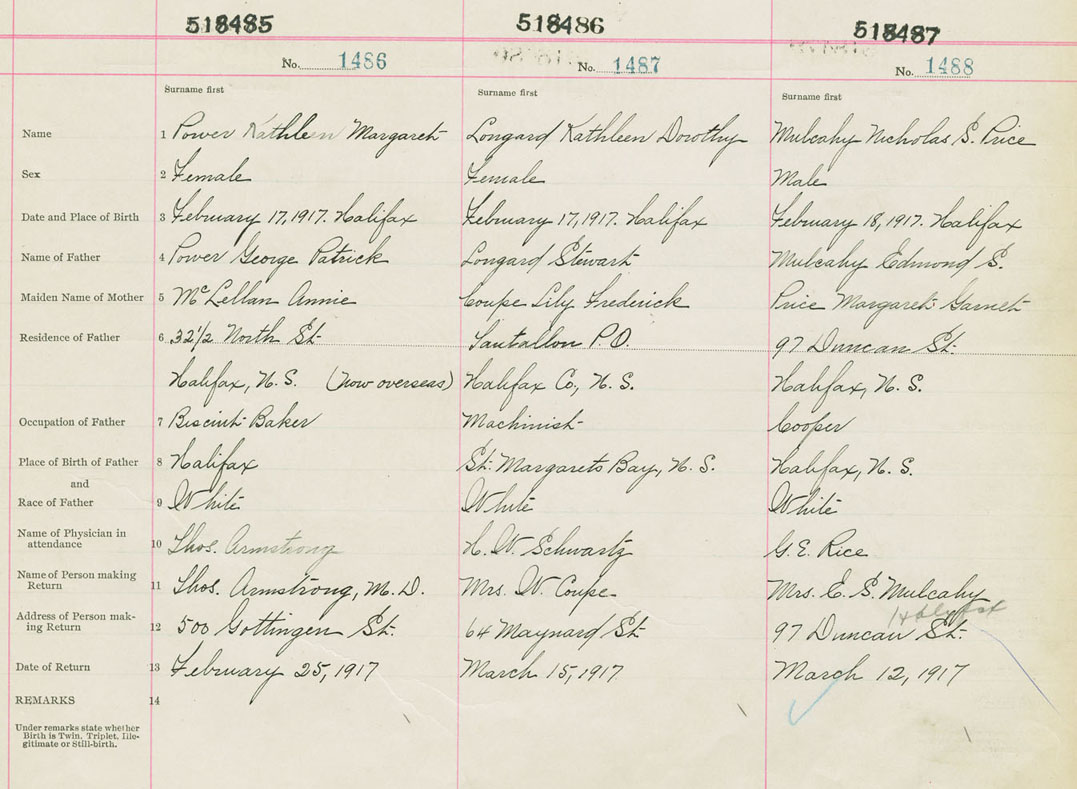 518485 518486 518487
No. 1486 No. 1487 No. 1488
Surname first Surname first Surname first
Name 1 Power Kathleen Margaret Longard Kathleen Dorothy Mulcahy Nicholas S. Price
Sex 2 Female Female Male
Date and Place of Birth 3 February 17, 1917. Halifax February 17, 1917. Halifax February 18, 1917. Halifax
Name of Father 4 Power George Patrick Longard Stewart Mulcahy Edmond S.
Maiden Name of Mother 5 McLellan Annie Coupe Lily Frederick Price Margaret Garnet
Residence of Father 6 32½ North St. Tantallon P.O. 97 Duncan St.
Halifax, N.S. (now overseas) Halifax Co., N.S. Halifax, N.S.
Occupation of Father 7 Biscuit Baker Machinist Cooper
Place of Birth of Father 8 Halifax St. Margarets Bay, N.S. Halifax, N.S.
and
Race of Father 9 White White White
Name of Physician in
attendance 10 Thos. Armstrong H. W. Schwartz G. E. Rice
Name of Person making
Return 11 Thos. Armstrong, M.D. Mrs. W. Coupe Mrs. E. S. Mulcahy
Halifax
Address of Person mak-
ing Return 12 500 Gottingen St. 64 Maynard St. 97 Duncan St.
Date of Return 13 February 25, 1917 March 15, 1917 March 12, 1917
REMARKS 14
Under remarks state whether
Birth is Twin, Triplet, Ille-
gitimate or Still-birth.